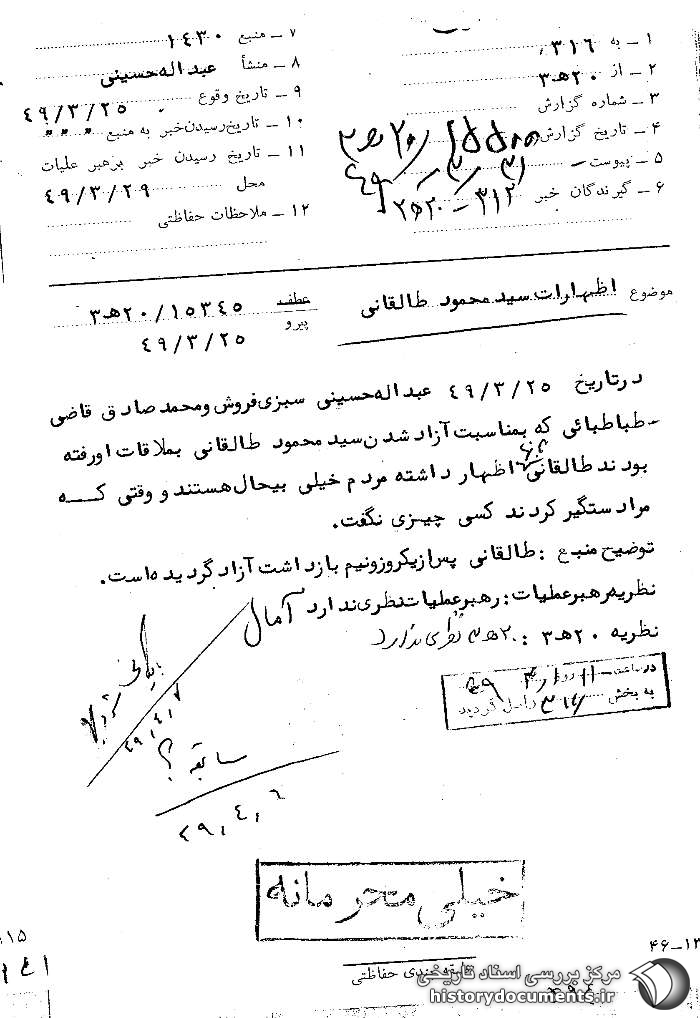 ۱ ـ به ۳۱۶
۲ ـ از ۲۰ هـ ۳
۳ ـ شماره گزارش
۴ ـ تاریخ گزارش
۵ ـ پیوست
۶ ـ گیرندگان خبر ۳۱۲ ـ ۲۰ هـ ۳
۷ ـ منبع ۱۴۳۰
۸ ـ منشأ عبداله حسینی
۹ ـ تاریخ وقوع ۴۹/۳/۲۵
۱۰ ـ تاریخ رسیدن خبر به منبع
۱۱ ـ تاریخ رسیدن خبر برهبر علیات
محل ۴۹/۳/۲۹
۱۲ ـ ملاحظات حفاظتی
موضوع اظهارات سید محمود طالقانی
عطف
پیرو
۱۵۳۴۵/۲۰ هـ ۳
۴۹/۳/۲۵
در تاریخ ۴۹/۳/۲۵ عبداله حسینی سبزی فروش و محمد صادق قاضی
طباطبائی که بمناسبت آزاد شدن سید محمود طالقانی بملاقات او رفته
بودند طالقانی اظهار داشته مردم خیلی بیحال هستند و وقتی که
مرا دستگیر کردند کسی چیزی نگفت.
توضیح منبع : طالقانی پس از یکروز و نیم بازداشت آزاد گردیده است.
نظریه رهبر عملیات : رهبر عملیات نظری ندارد آمال
نظریه ۲۰ هـ ۳ : ۲۰ هـ ۳ نظری ندارد
به بخش ۳۱۶ واصل گردید
بایگانی شود
۴۹,۴,۷
سابقه ؟
۴۹,۴,۶
خیلی محرمانه
طبقه بندی حفاظتی
۴۶ـ۱۲
۱۵
مرکز بررسی اسناد تاریخی
historydocuments.ir